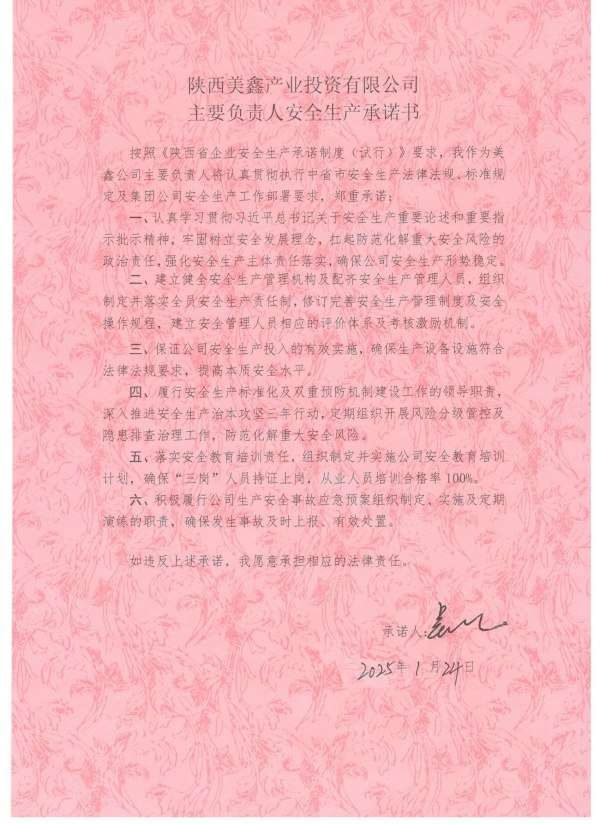 陕西美鑫产业投资有限公司
主要负责人安全生产承诺书
按照《陕西省企业安全生产承诺制度（试行）》要求，我作为美
鑫公司主要负责人将认真贯彻执行中省市安全生产法律法规、标准规
定及集团公司安全生产工作部署要求，郑重承诺：
一、认真学习贯彻习近平总书记关于安全生产重要论述和重要指
示批示精神，牢固树立安全发展理念，扛起防范化解重大安全风险的
政治责任，强化安全生产主体责任落实，确保公司安全生产形势稳定。
二、建立健全安全生产管理机构及配齐安全生产管理人员，组织
制定并落实全员安全生产责任制，修订完善安全生产管理制度及安全
操作规程，建立安全管理人员相应的评价体系及考核激励机制。
三、保证公司安全生产投入的有效实施，确保生产设备设施符合
法律法规要求，提高本质安全水平。
四、履行安全生产标准化及双重预防机制建设工作的领导职责，
深入推进安全生产治本攻坚三年行动，定期组织开展风险分级管控及
隐患排查治理工作，防范化解重大安全风险。
五、落实安全教育培训责任，组织制定并实施公司安全教育培训
计划，确保“三岗”人员持证上岗，从业人员培训合格率100%。
六、积极履行公司生产安全事故应急预案组织制定、实施及定期
演练的职责，确保发生事故及时上报、有效处置。
如违反上述承诺，我愿意承担相应的法律责任。
承诺人：
2025年1月24日